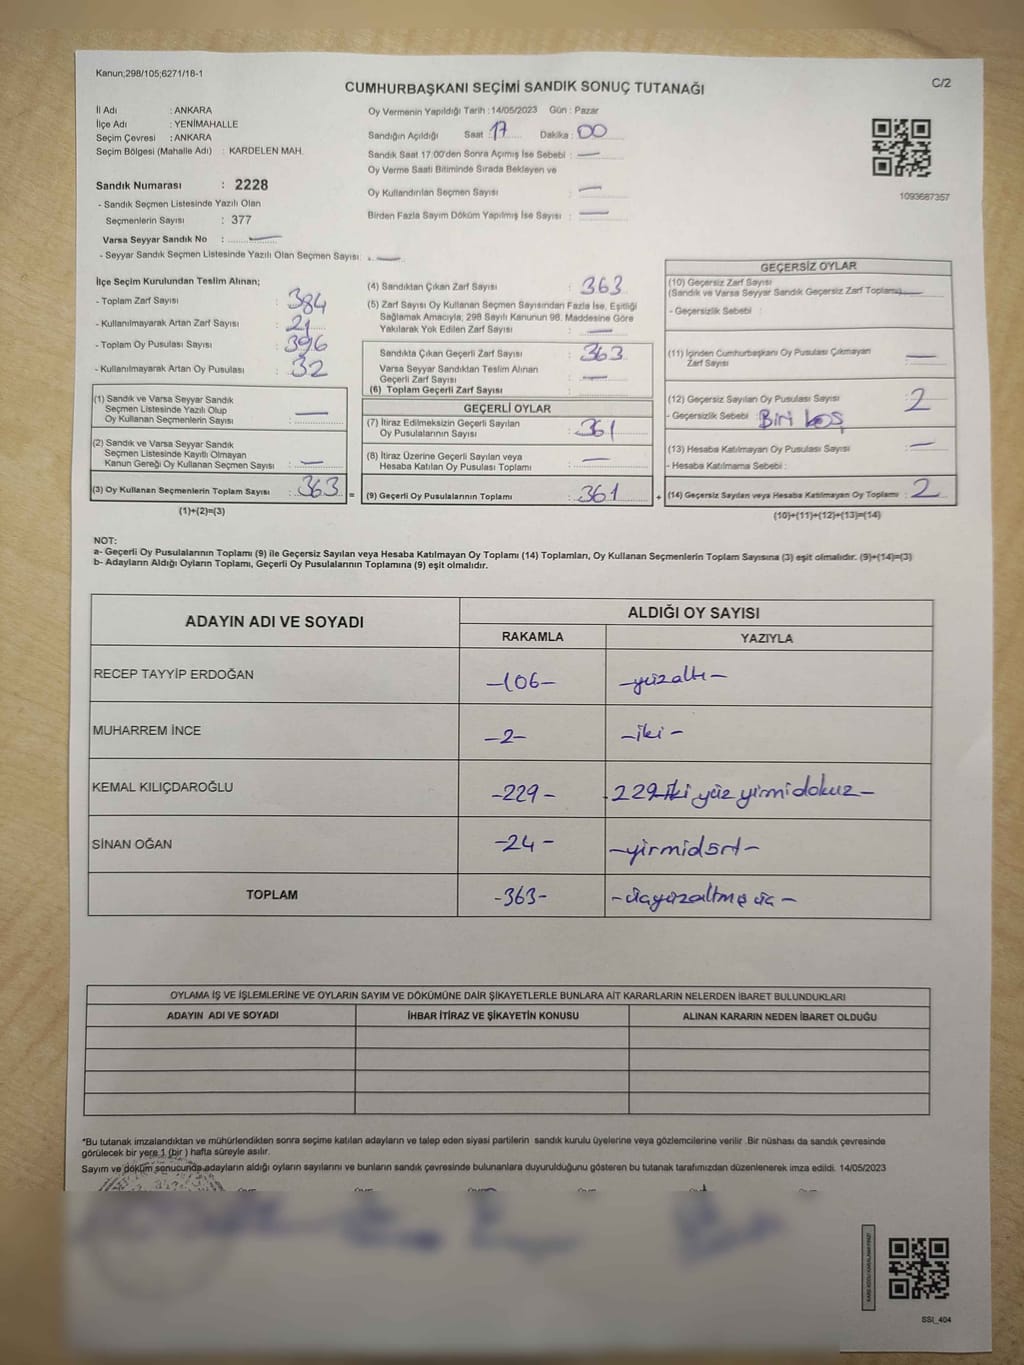 Kanun;298/105;6271/18-1
CUMHURBAŞKANI SEÇİMİ SANDIK SONUÇ TUTANAĞI
C/2
İl Adı : ANKARA
İlçe Adı : YENİMAHALLE
Seçim Çevresi : ANKARA
Seçim Bölgesi (Mahalle Adı) : KARDELEN MAH.
Sandık Numarası : 2228
- Sandık Seçmen Listesinde Yazılı Olan
Seçmenlerin Sayısı : 377
Varsa Seyyar Sandık No :
- Seyyar Sandık Seçmen Listesinde Yazılı Olan Seçmen Sayısı:
Oy Vermenin Yapıldığı Tarih :14/05/2023 Gün : Pazar
Sandığın Açıldığı Saat : 17 Dakika : 00
Sandık Saat 17:00'den Sonra Açımış İse Sebebi : —
Oy Verme Saati Bitiminde Sırada Bekleyen ve
Oy Kullandırılan Seçmen Sayısı : —
Birden Fazla Sayım Döküm Yapılmış İse Sayısı : —
1093687357
İlçe Seçim Kurulundan Teslim Alınan;
- Toplam Zarf Sayısı : 384
- Kullanılmayarak Artan Zarf Sayısı : 21
- Toplam Oy Pusulası Sayısı : 396
- Kullanılmayarak Artan Oy Pusulası : 32
(1) Sandık ve Varsa Seyyar Sandık
Seçmen Listesinde Yazılı Olup
Oy Kullanan Seçmenlerin Sayısı : —
(2) Sandık ve Varsa Seyyar Sandık
Seçmen Listesinde Kayıtlı Olmayan
Kanun Gereği Oy Kullanan Seçmen Sayısı : —
(3) Oy Kullanan Seçmenlerin Toplam Sayısı : 363 =
(1)+(2)=(3)
(4) Sandıktan Çıkan Zarf Sayısı : 363
(5) Zarf Sayısı Oy Kullanan Seçmen Sayısından Fazla İse, Eşitliği
Sağlamak Amacıyla; 298 Sayılı Kanunun 98. Maddesine Göre
Yakılarak Yok Edilen Zarf Sayısı : —
Sandıkta Çıkan Geçerli Zarf Sayısı : 363
Varsa Seyyar Sandıktan Teslim Alınan
Geçerli Zarf Sayısı : —
(6) Toplam Geçerli Zarf Sayısı :
GEÇERLİ OYLAR
(7) İtiraz Edilmeksizin Geçerli Sayılan
Oy Pusulalarının Sayısı : 361
(8) İtiraz Üzerine Geçerli Sayılan veya
Hesaba Katılan Oy Pusulası Toplamı : —
(9) Geçerli Oy Pusulalarının Toplamı : 361 +
GEÇERSİZ OYLAR
(10) Geçersiz Zarf Sayısı
(Sandık ve Varsa Seyyar Sandık Geçersiz Zarf Toplamı) —
- Geçersizlik Sebebi :
(11) İçinden Cumhurbaşkanı Oy Pusulası Çıkmayan
Zarf Sayısı —
(12) Geçersiz Sayılan Oy Pusulası Sayısı : 2
- Geçersizlik Sebebi : Biri boş
(13) Hesaba Katılmayan Oy Pusulası Sayısı : —
- Hesaba Katılmama Sebebi :
(14) Geçersiz Sayılan veya Hesaba Katılmayan Oy Toplamı : 2
(10)+(11)+(12)+(13)=(14)
NOT:
a- Geçerli Oy Pusulalarının Toplamı (9) ile Geçersiz Sayılan veya Hesaba Katılmayan Oy Toplamı (14) Toplamları, Oy Kullanan Seçmenlerin Toplam Sayısına (3) eşit olmalıdır. (9)+(14)=(3)
b- Adayların Aldığı Oyların Toplamı, Geçerli Oy Pusulalarının Toplamına (9) eşit olmalıdır.
ADAYIN ADI VE SOYADI ALDIĞI OY SAYISI
RAKAMLA YAZIYLA
RECEP TAYYİP ERDOĞAN -106- -yüzaltı-
MUHARREM İNCE -2- -iki-
KEMAL KILIÇDAROĞLU -229- -229-iki yüz yirmidokuz-
SİNAN OĞAN -24- -yirmidört-
TOPLAM -363- -üçyüzaltmış üç-
OYLAMA İŞ VE İŞLEMLERİNE VE OYLARIN SAYIM VE DÖKÜMÜNE DAİR ŞİKAYETLERLE BUNLARA AİT KARARLARIN NELERDEN İBARET BULUNDUKLARI
ADAYIN ADI VE SOYADI İHBAR İTİRAZ VE ŞİKAYETİN KONUSU ALINAN KARARIN NEDEN İBARET OLDUĞU
*Bu tutanak imzalandıktan ve mühürlendikten sonra seçime katılan adayların ve talep eden siyasi partilerin sandık kurulu üyelerine veya gözlemcilerine verilir .Bir nüshası da sandık çevresinde
görülecek bir yere 1 (bir ) hafta süreyle asılır.
Sayım ve döküm sonucunda adayların aldığı oyların sayılarını ve bunların sandık çevresinde bulunanlara duyurulduğunu gösteren bu tutanak tarafımızdan düzenlenerek imza edildi. 14/05/2023
SSI_404